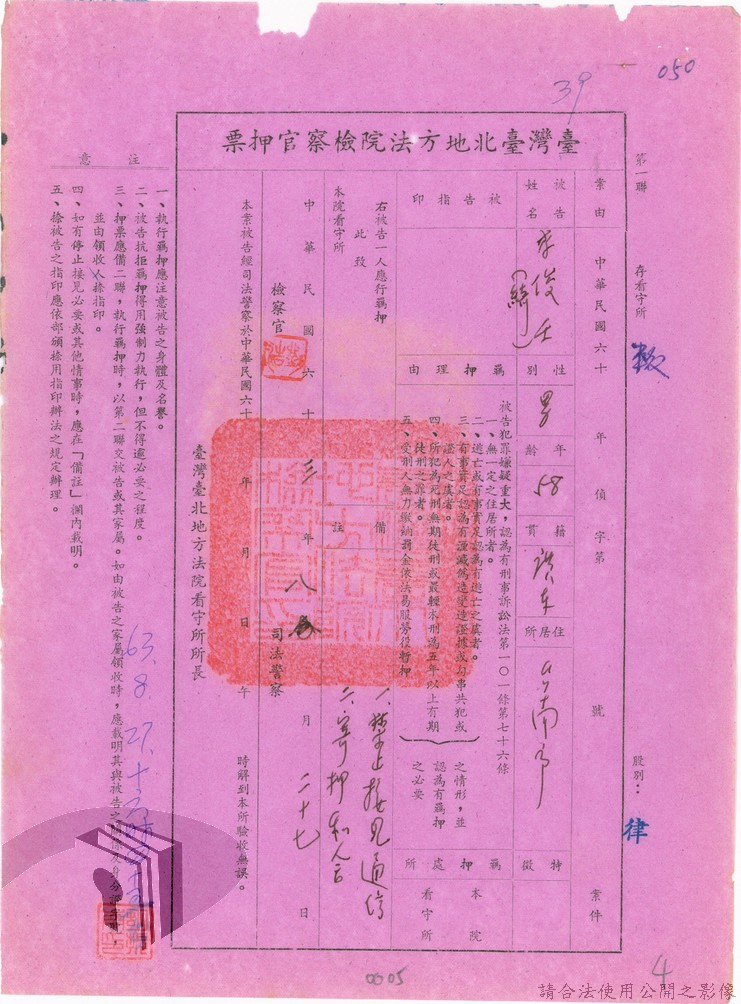 050
39
臺灣臺北地方法院檢察官押票
第一聯 存看守所 股別：律
案由 中華民國六十 年 偵字第 號 案件
被告姓名 李俊 性別 男 年齡 58 籍貫 廣東 住居所 台南市 特徵
被告指印 羈押理由
被告犯罪嫌疑重大，認為有刑事訴訟法第一〇一條第七十六條
一、無一定之住居所者。
二、逃亡或有事實足認為有逃亡之虞者。
三、有事實足認為有湮滅偽造變造證據或勾串共犯或
證人之虞者。
四、所犯為死刑無期徒刑或最輕本刑為五年以上有期
徒刑之罪者。
五、受刑人無力繳納罰金依法易服勞役暫押
之情形，並
認為有羈押
之必要
羈押處所 本院看守所
右被告一人應行羈押
此致
本院看守所
備註
一、禁止接見通信
二、寄押
中華民國六十三年八月二十七日
檢察官 司法警察
本案被告經司法警察於中華民國六十 年 月 日 午 時解到本所驗收無誤。
臺灣臺北地方法院看守所所長
注意
一、執行羈押應注意被告之身體及名譽。
二、被告抗拒羈押得用強制力執行，但不得逾必要之程度。
三、押票應備二聯，執行羈押時，以第二聯交被告或其家屬。如由被告之家屬領收時，應載明其與被告之關係及身分證字號，
並由領收人捺指印。
四、如有停止接見必要或其他情事時，應在「備註」欄內載明。
五、捺被告之指印應依部頒捺用指印辦法之規定辦理。
63.8.27.
0005
4
請合法使用公開之影像